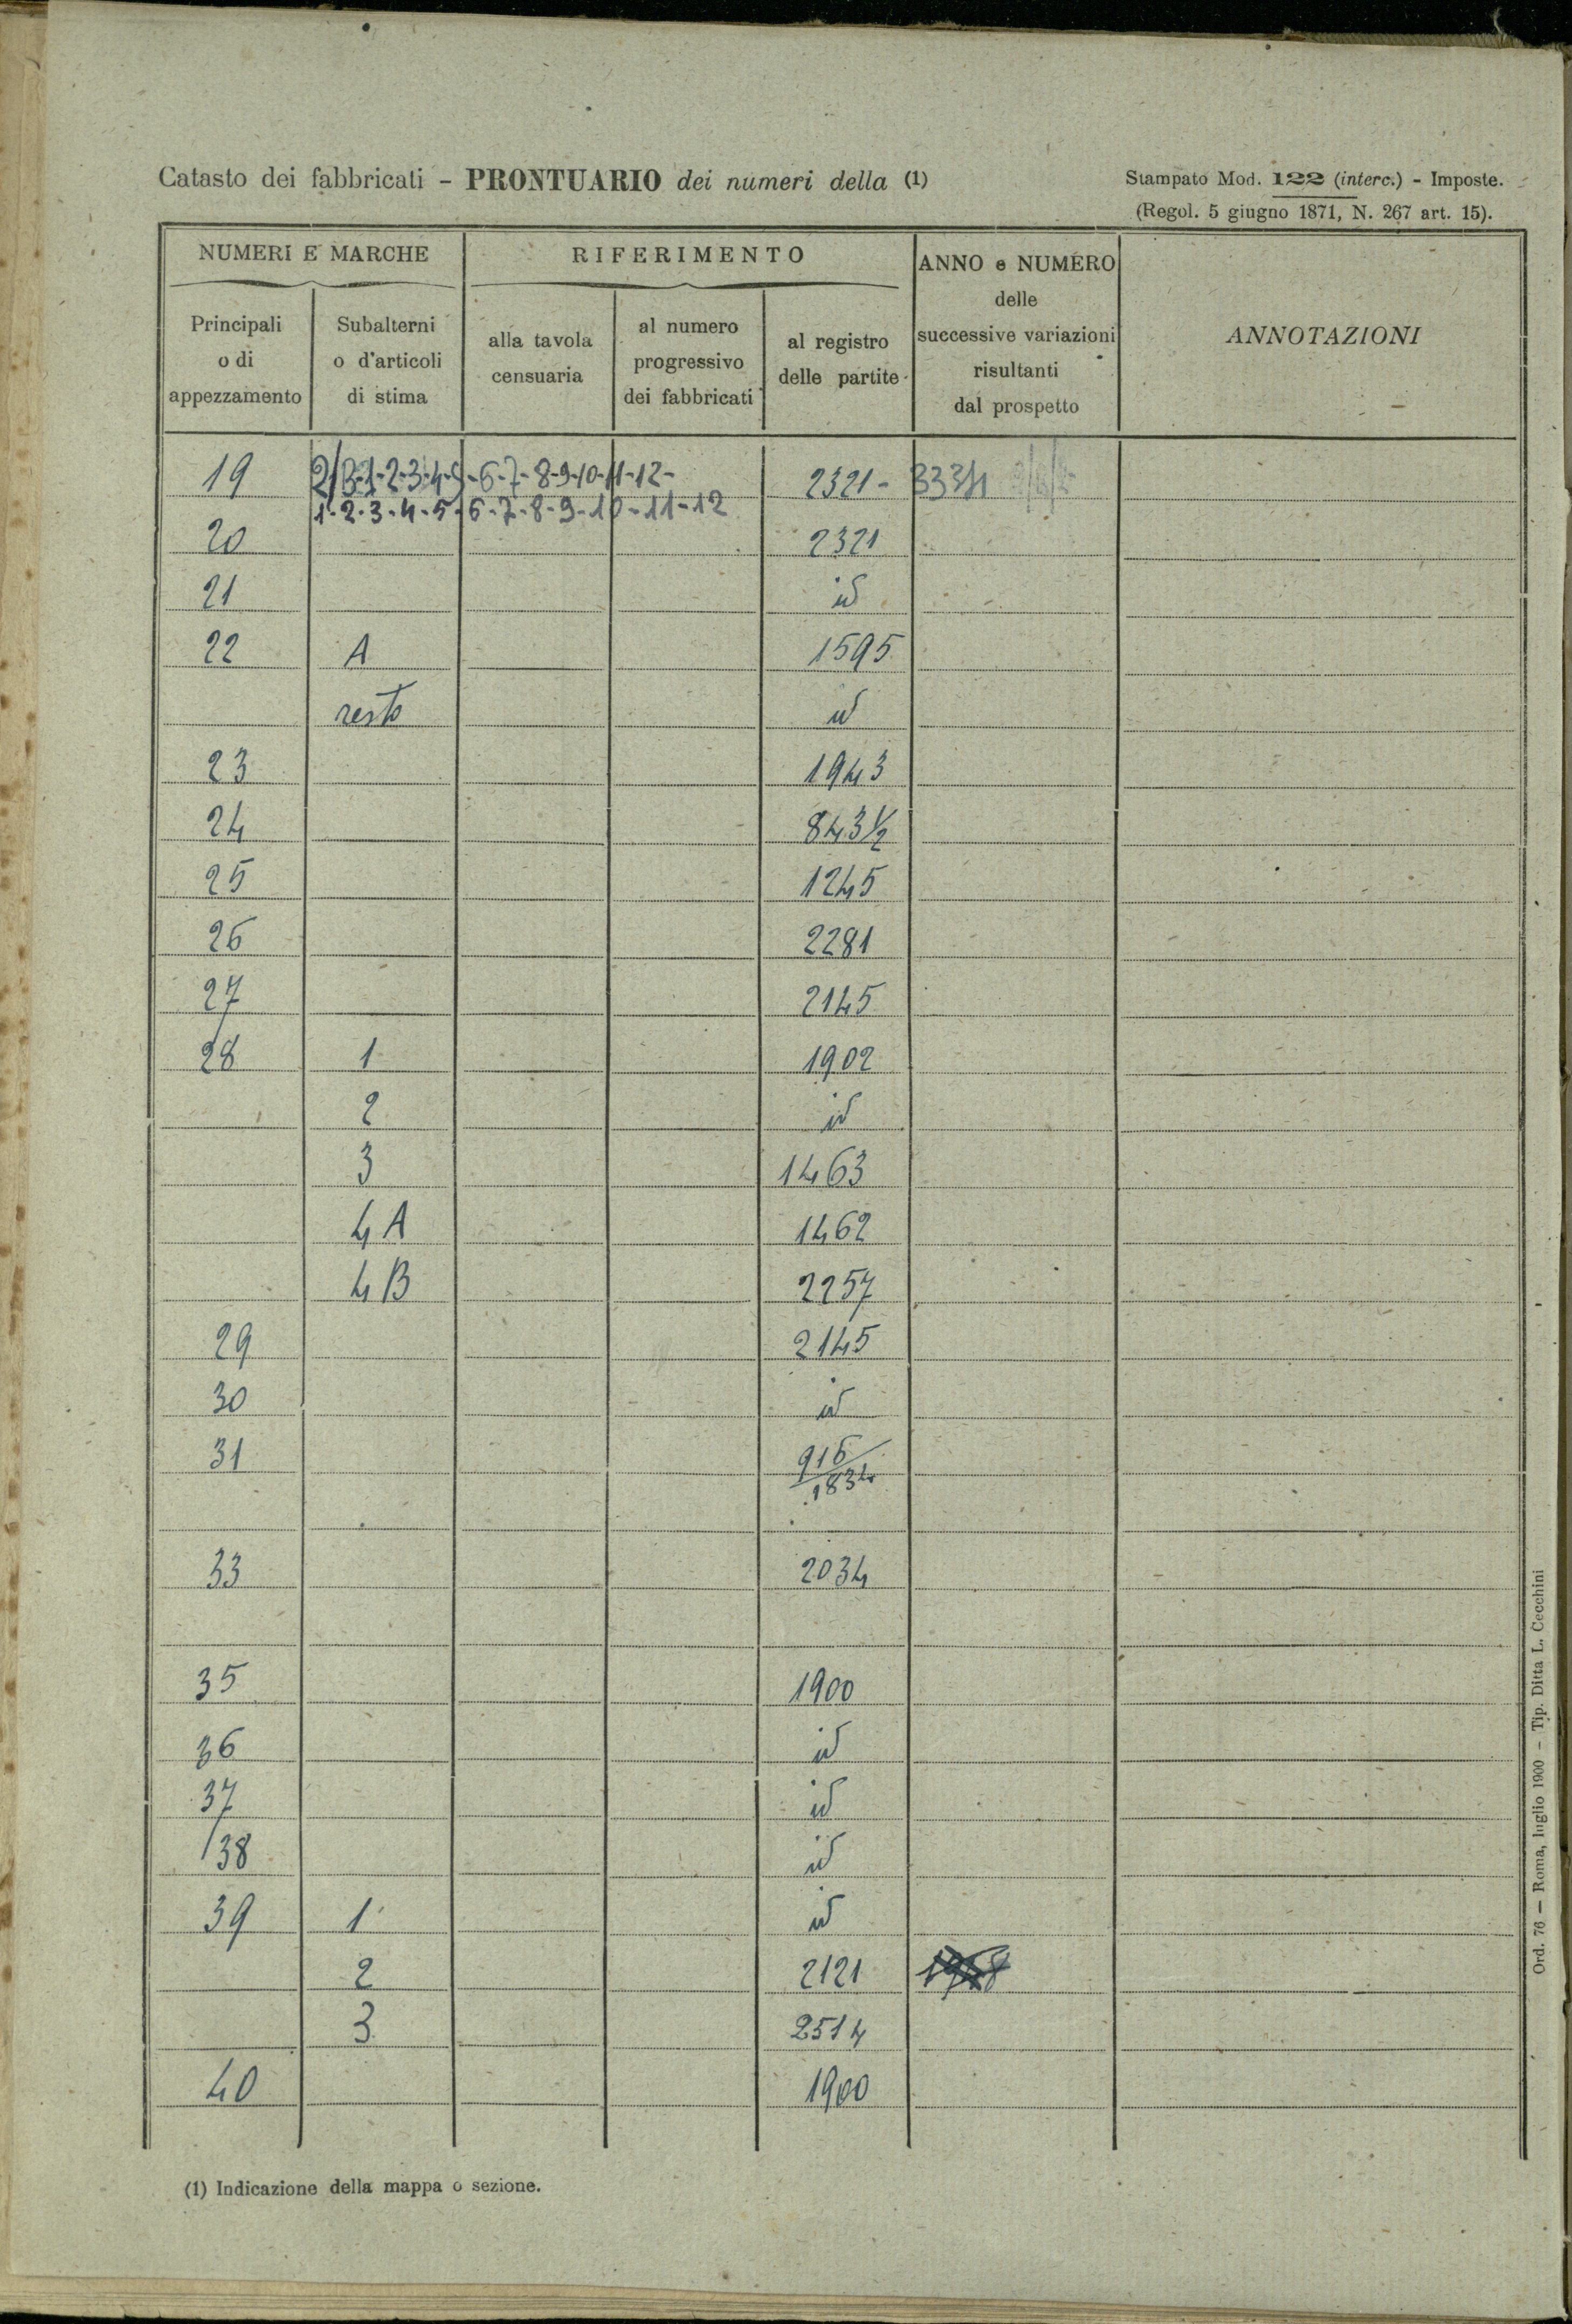 Catasto dei fabbricati - PRONTUARIO dei numeri della (1)
Stampato Mod. 122 (interc.) - Imposte.
(Regol. 5 giugno 1871, N. 267 art. 15).
NUMERI E MARCHE
RIFERIMENTO
ANNO e NUMERO
delle
successive variazioni
risultanti
dal prospetto
ANNOTAZIONI
Principali
o di
appezzamento
Subalterni
o d'articoli
di stima
alla tavola
censuaria
al numero
progressivo
dei fabbricati
al registro
delle partite
19 2/3-1-2-3-4-5-6-7-8-9-10-11-12- 2321-
1-2-3-4-5-6-7-8-9-10-11-12
20 2321
21 id
22 A 1595
resto id
23 1943
24 843 1/2
25 1245
26 2281
27 2145
28 1 1902
2 id
3 1463
4A 1462
4B 2257
29 2145
30 id
31 916
1834
33 2034
35 1900
36 id
37 id
38 id
39 1 id
2 2121
3 2514
40 1900
(1) Indicazione della mappa o sezione.
Ord. 76 — Roma, luglio 1900 - Tip. Ditta L. Cecchini